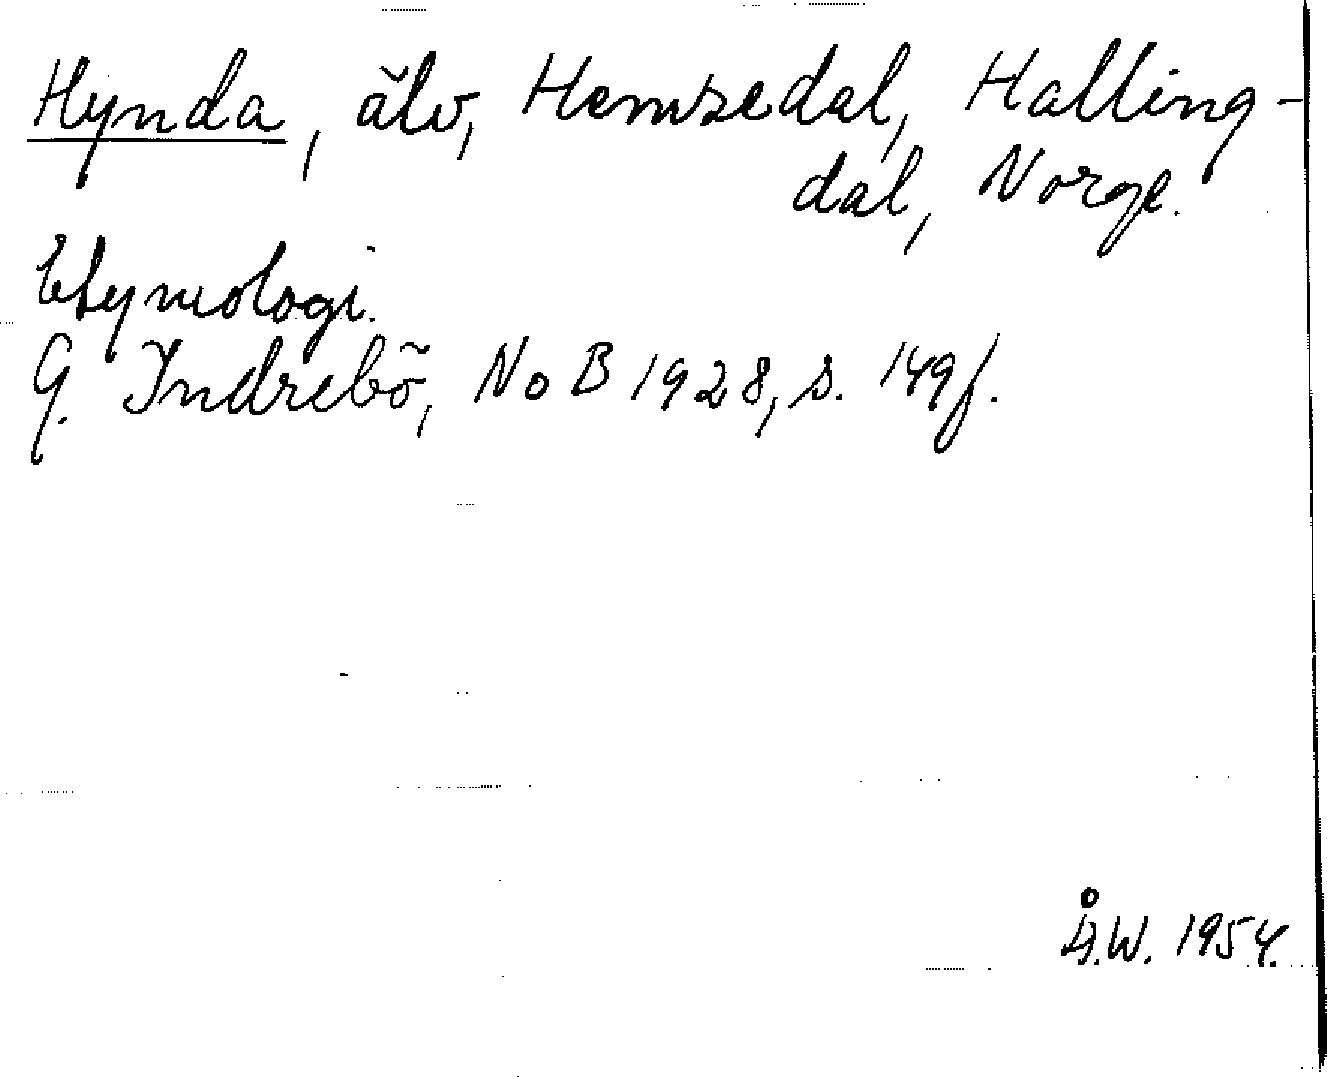 Hynda, älv, Hemsedal, Halling-
dal, Norge.
Etymologi.
G. Indrebö, NoB 1928, s. 149f.
Å.W. 1954.